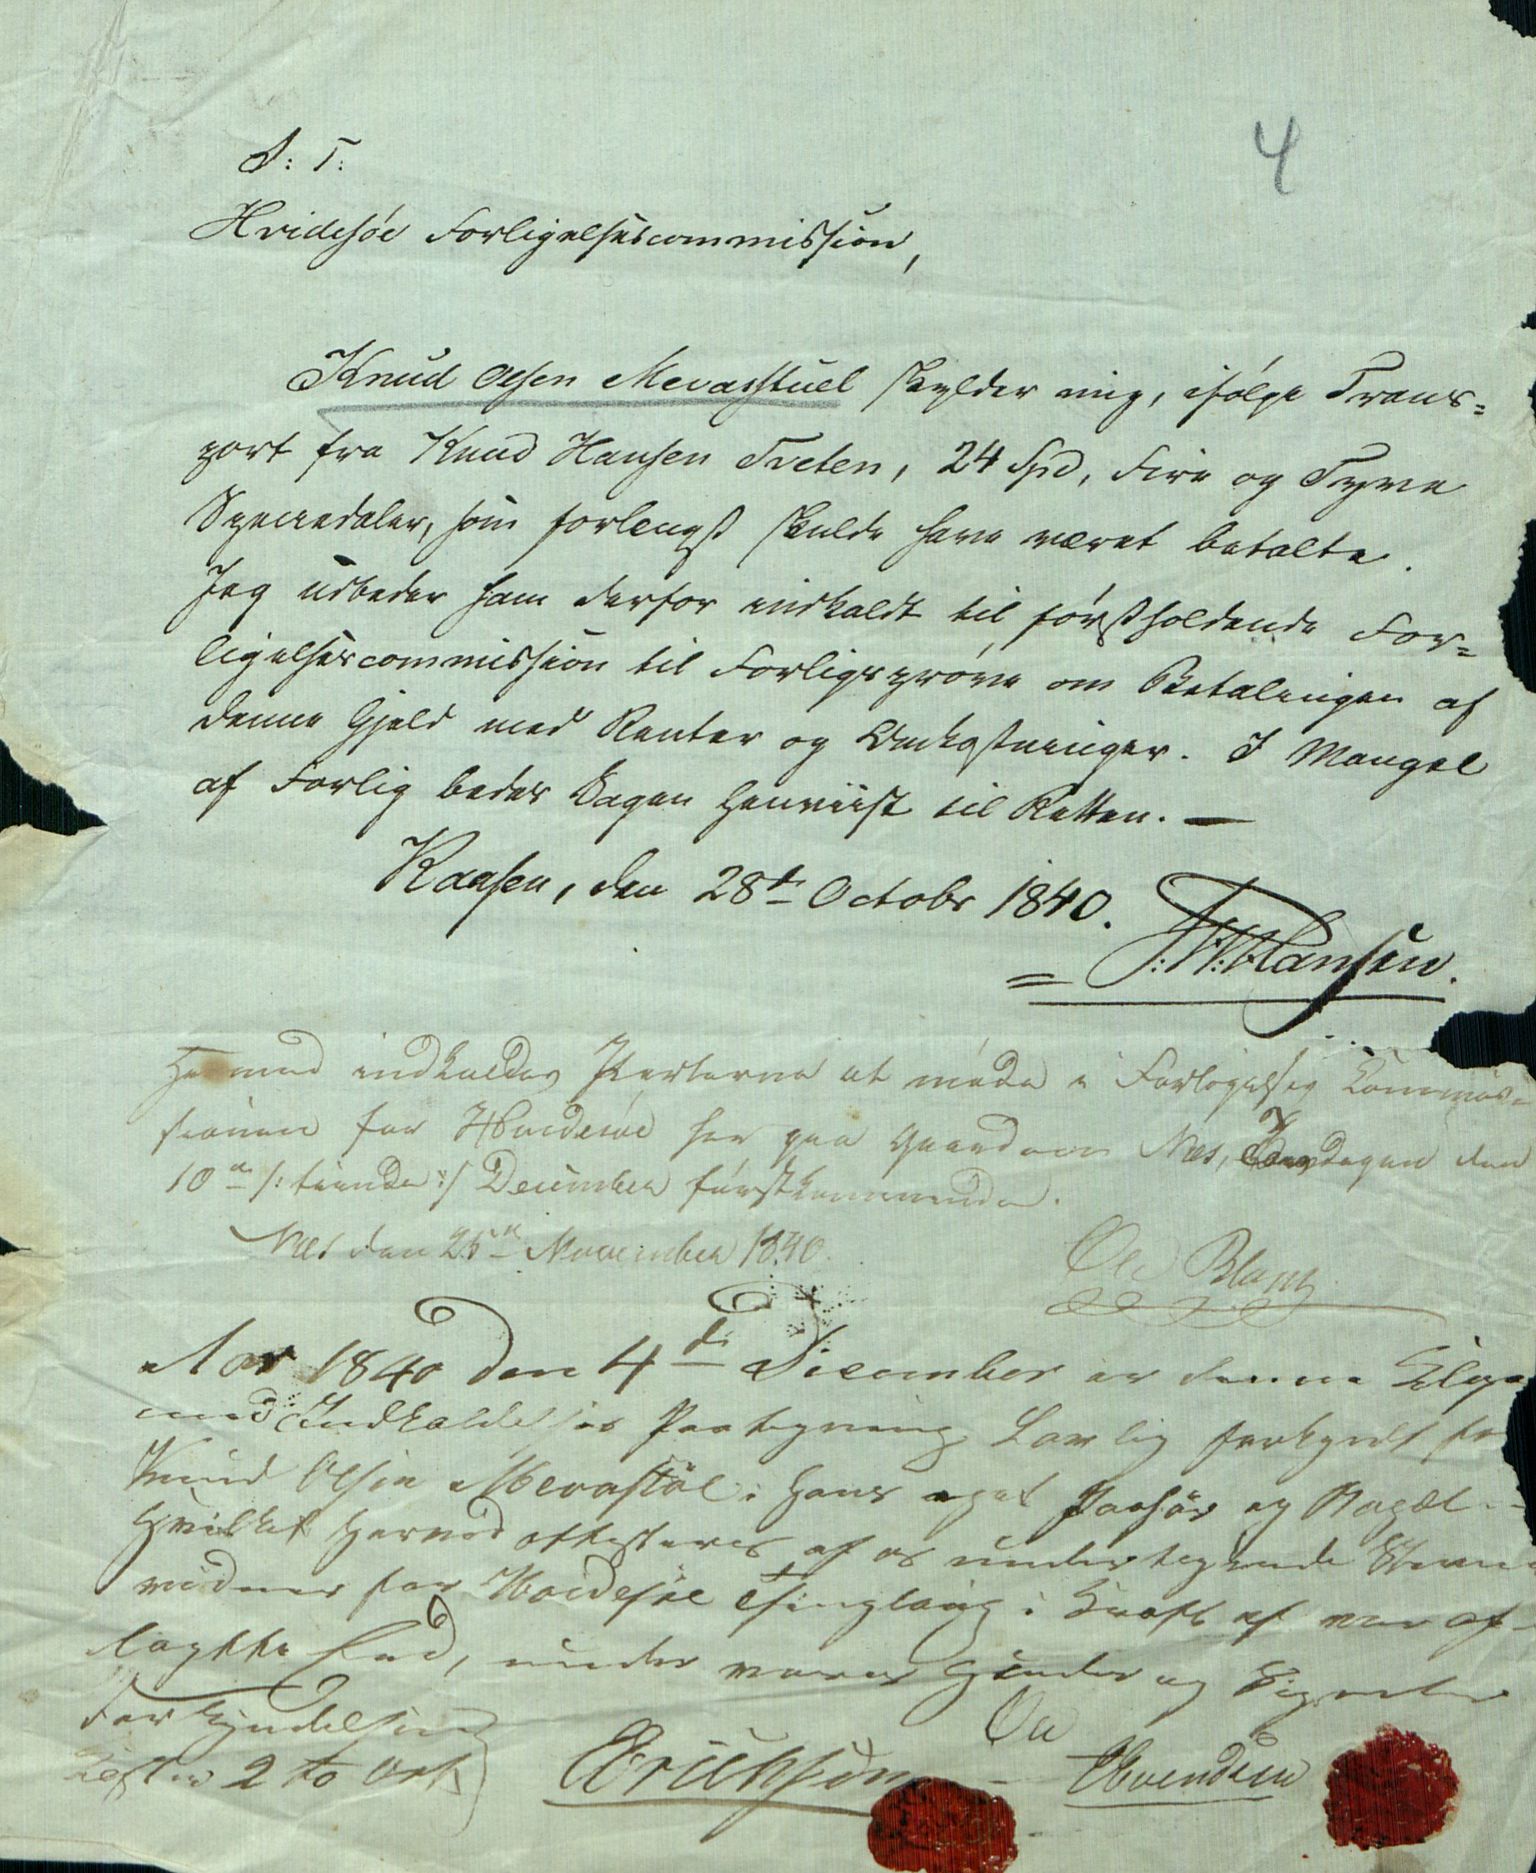 S: T:
4
Hvidesøe Forligelsescommission,
Knud Olsen Mevasstuel skylder mig, ifølge Trans=
port fra Knud Hansen Tveten, 24 Spd, Fire og Tyve
Speciedaler, som forlengst skulde have været betalte.
Jeg udbeder ham derfor indkaldt til førstholdende For=
ligelsescommission til Forligsprøve om Betalingen af
denne Gjeld med Renter og Omkostninger. I Mangel
af Forlig bedes Sagen henviist til Retten. —
Kaasen, den 28de Octobr 1840.
Hansen.
Hermed indkaldes Parterne at møde i Forligelses Commis=
sionen for Hvidesøe her paa Gaarden Næs, Torsdagen den
10de /: tiende :/ December førstkommende.
Næs den 25de November 1840.
Ole
Aar 1840 den 4de December er denne Klage
med Indkaldelses Paategning Lovlig forkyndt for
Knud Olsen Mevastøl i hans eget Paahør og Bopæl
hvilket herved attesteres af os undertegnede Stevne
vidner for Hvidesøe Thinglaug i Kraft af vor af=
lagthe Eed, under vores Hender og Signeter
Forkyndelsen
Koster 2 to Ort
Erichsen
Ole
Evendsen